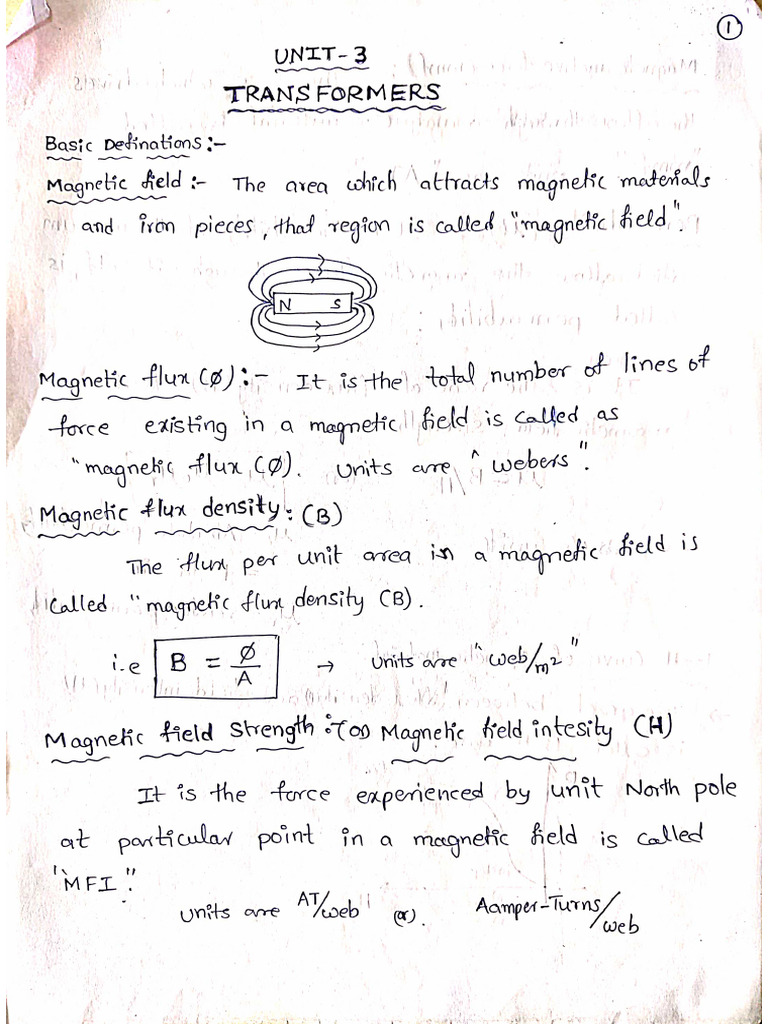 1
UNIT-3
TRANSFORMERS
Basic Definations:-
Magnetic field :- The area which attracts magnetic materials
and iron pieces, that region is called "magnetic field".
N S
Magnetic flux (Ø):- It is the total number of lines of
force existing in a magnetic field is called as
"magnetic flux (Ø). Units are "webers".
Magnetic flux density: (B)
The flux per unit area in a magnetic field is
Called "magnetic flux density (B).
i.e B = Ø/A → Units are "web/m²"
Magnetic field Strength :- (or) Magnetic field intesity (H)
It is the force experienced by unit North pole
at particular point in a magnetic field is called
"MFI".
Units are AT/web (or). Aamper-Turns/web